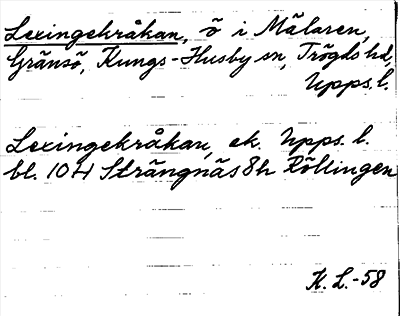 Lexingekråkan, ö i Mälaren,
Gränsö, Kungs-Husby sn, Trögds hd,
Upps. l.
Lexingekråkan, ek. Upps. l.
bl. 104 Strängnäs 8h Röllingen
K. L. -58